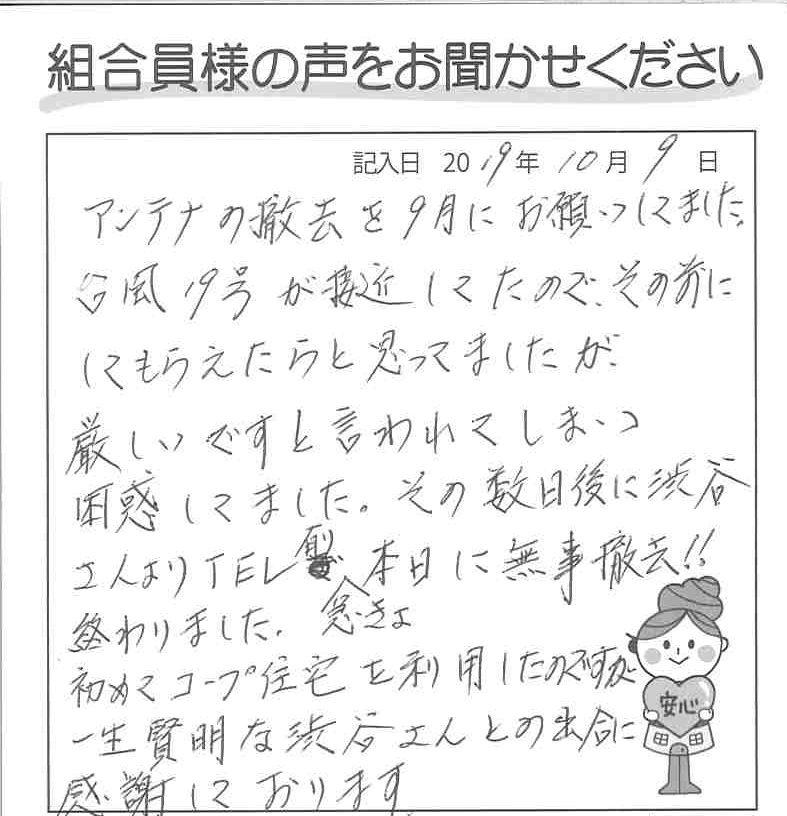 組合員様の声をお聞かせください
記入日 2019年 10月 9日
アンテナの撤去を9月にお願いしてました。
台風19号が接近してたので、その前に
してもらえたらと思ってましたが、
厳しいですと言われてしまい
困惑してました。その数日後に渋谷
さんよりTEL有り本日に無事撤去!!
終わりました。急きょ
初めてコープ住宅を利用したのですが
一生賢明な渋谷さんとの出合に
感謝しております
安心